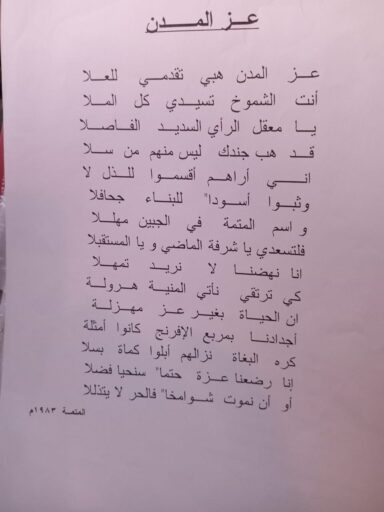 عز المدن
عز المدن هبي تقدمي للعلا
أنت الشموخ تسيدي كل الملا
يا معقل الرأي السديد الفاصلا
قد هب جندك ليس منهم من سلا
اني أراهم أقسموا للذل لا
وثبوا أسودا" للبناء جحافلا
و اسم المتمة في الجبين مهللا
فلتسعدي يا شرفة الماضي و يا المستقبلا
انا نهضنا لا نريد تمهلا
كي ترتقي نأتي المنية هرولة
ان الحياة بغير عز مهزلة
أجدادنا بمربع الإفرنج كانوا أمثلة
كره البغاة نزالهم أبلوا كماة بسلا
إنا رضعنا عزة حتما" سنحيا فضلا
أو أن نموت شوامخا" فالحر لا يتذللا
المتمة ١٩٨٣م